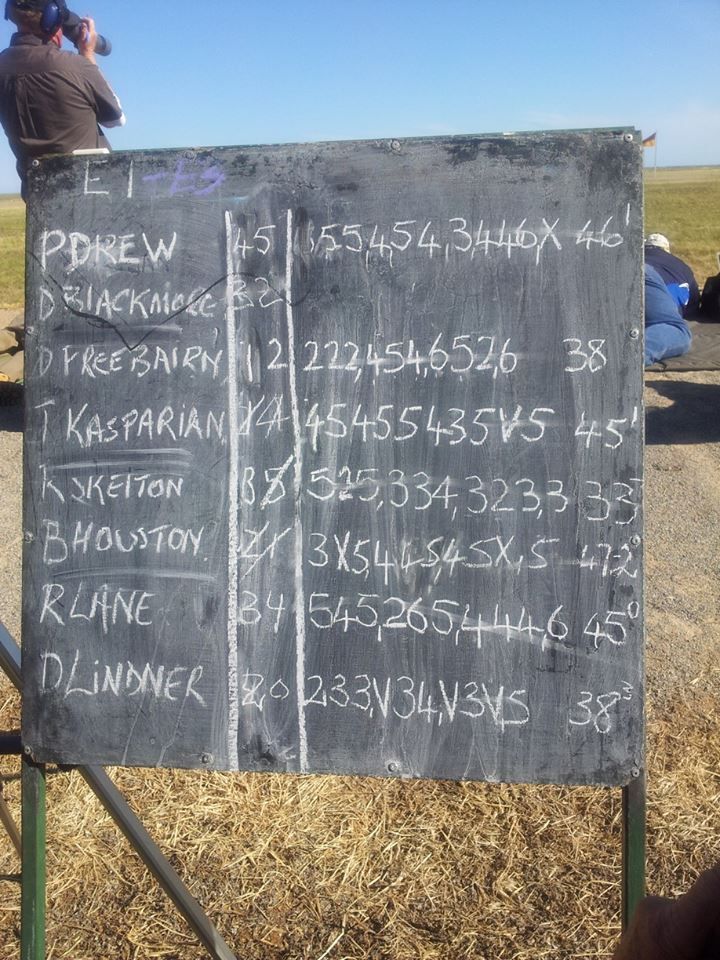 E 1 -Es
P DREW 45 555,454,3446,X 46¹
D BLACKMORE 32
D FREEBAIRN 12 222,454,652,6 38
T KASPARIAN 14 45455435V5 45¹
K SKELTON B5 525,334,323,3 33
B HOUSTON. 21 3X5,445,45X,5 47²
R LANE 34 545,265,444,6 45⁰
D LINDNER 20 233,V34,V3V5 38³